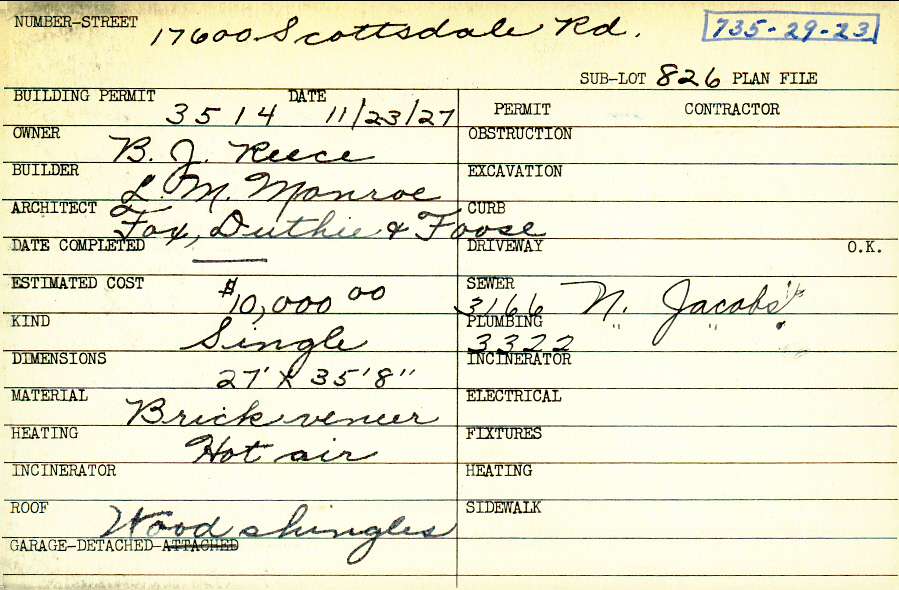 NUMBER-STREET 17600 Scottsdale Rd. 735-29-23
SUB-LOT 826 PLAN FILE
BUILDING PERMIT 3514 DATE 11/23/27 PERMIT CONTRACTOR
OWNER B. J. Reece OBSTRUCTION
BUILDER L. M. Monroe EXCAVATION
ARCHITECT Fox, Duthie & Foose CURB
DATE COMPLETED — DRIVEWAY O.K.
ESTIMATED COST $10,000 00 SEWER 3166 N. Jacobs
KIND Single PLUMBING 3322 " "
DIMENSIONS 27' X 35'8" INCINERATOR
MATERIAL Brick veneer ELECTRICAL
HEATING Hot air FIXTURES
INCINERATOR HEATING
ROOF Wood shingles SIDEWALK
GARAGE-DETACHED-ATTACHED